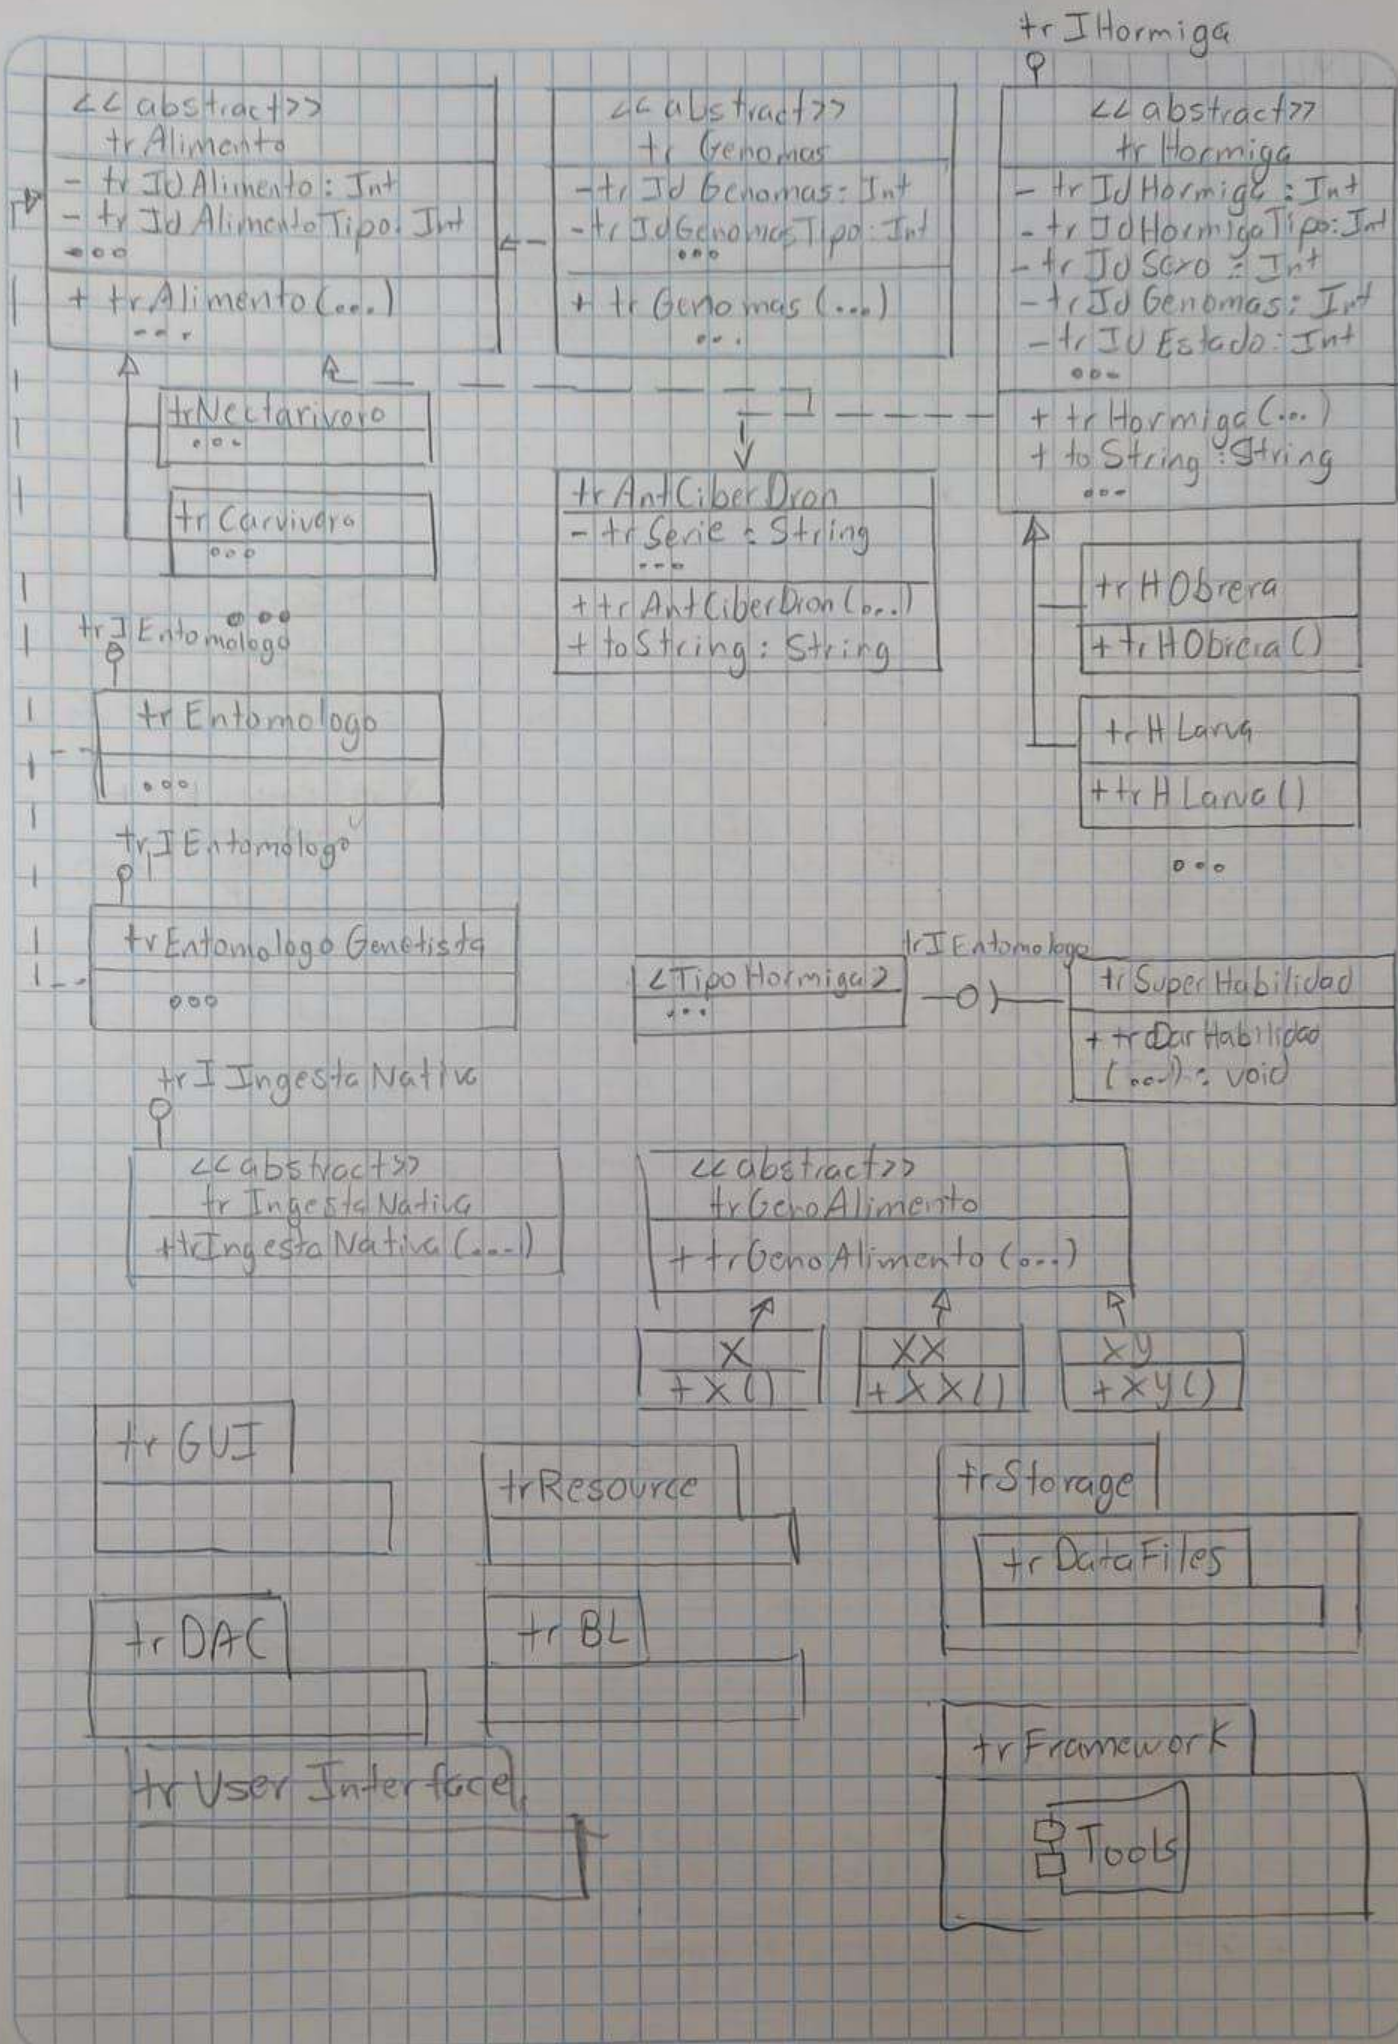 tr IHormiga
<<abstract>>
tr Alimento
- tr IdAlimento: Int
- tr Id AlimentoTipo: Int
ooo
+ tr Alimento (...)
...
<<abstract>>
tr Genomas
- tr Id Genomas: Int
- tr IdGenomasTipo: Int
ooo
+ tr Genomas (...)
...
<<abstract>>
tr Hormiga
- tr IdHormiga: Int
- tr IdHormigaTipo: Int
- tr Id Sexo: Int
- tr Id Genomas: Int
- tr Id Estado: Int
ooo
+ tr Hormiga (...)
+ to String: String
ooo
trNectarivoro
ooo
tr Carvivoro
ooo
ooo
trAntCiberDron
- tr Serie: String
...
+ tr AntCiberDron (...)
+ toString: String
tr HObrera
+ tr HObrera ()
tr H Larva
+ tr H Larva ()
ooo
tr IEntomologo
tr Entomologo
ooo
tr IEntomólogo
tr Entomologo Genetista
ooo
<TipoHormiga>
...
tr IEntomologo
tr SuperHabilidad
+ tr Dar Habilidad
(...): void
tr I IngestaNativa
<<abstract>>
tr IngestaNativa
+trIngestaNativa (....)
<<abstract>>
tr GenoAlimento
+ tr GenoAlimento (...)
X
+ X ()
XX
+ XX()
xy
+ xy()
tr GUI
trResource
trStorage
tr DataFiles
tr DAC
tr BL
tr User Interface
tr Framework
Tools